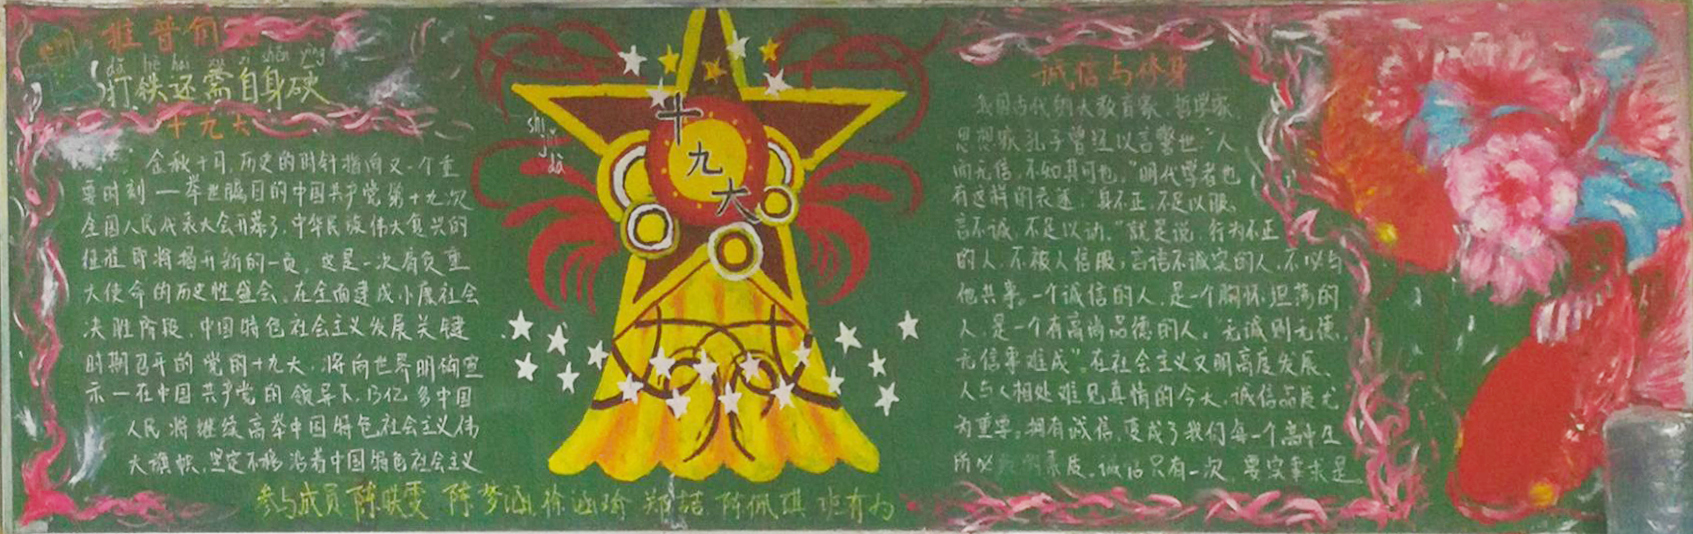 推普周
dǎ tiě hái xū zì shēn yìng
打铁还需自身硬
十九大
金秋十月,历史的时针指向又一个重
要时刻——举世瞩目的中国共产党第十九次
全国人民代表大会开幕了,中华民族伟大复兴的
征程即将揭开新的一页。这是一次肩负重
大使命的历史性盛会。在全面建成小康社会
决胜阶段,中国特色社会主义发展关键
时期召开的党的十九大,将向世界明确宣
示—在中国共产党的领导下,13亿多中国
人民将继续高举中国特色社会主义伟
大旗帜,坚定不移沿着中国特色社会主义
shí jiǔ dà
十九大
诚信与修身
我国古代的大教育家、哲学家、
思想家孔子曾经以言警世“人
而无信,不知其可也。”明代学者也
有这样的表述“身不正,不足以服。
言不诚,不足以动。”就是说,行为不正
的人,不被人信服,言语不诚实的人,不必与
他共事。一个诚信的人,是一个胸怀坦荡的
人,是一个有高尚品德的人。“无诚则无德,
无信事难成”。在社会主义文明高度发展、
人与人相处难见真情的今天,诚信品质尤
为重要。拥有诚信,变成了我们每一个高中生
所必素质。诚信只有一次,要实事求是
参与成员 陈 雯 陈梦涵 徐涵瑜 郑喆 陈佩琪 班有为